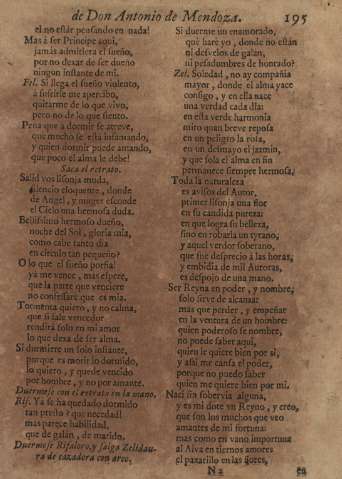 de Don Antonio de Mendoza. 195
el no estàr pensando en nada!
Mas à ser Principe aqui,
jamàs admitiera el sueño,
por no dexar de ser dueño
ningun instante de mi.
Fel. Si llega el sueño violento,
à sufrirle me apercibo,
quitarme de lo que vivo,
pero no de lo que siento.
Pena que à dormir se atreve,
que mucho se està infamando,
y quien dormir puede amando,
que poco el alma le debe!
Saca el retrato.
Salid vos lisonja muda,
silencio eloquente, donde
de Angel, y muger esconde
el Cielo una hermosa duda.
Bellissimo hermoso dueño,
noche del Sol, gloria mia,
como cabe tanto dia
en circulo tan pequeño?
O lo que el sueño porfia!
ya me vence, mas espere,
que la parte que venciere
no confessarè que es mia.
Tormenta quiero, y no calma,
que si sale vencedor
rendirà solo en mi amor
lo que dexa de ser alma.
Si durmiere un solo instante,
porque es morir lo dormido,
lo quiero, y quede vencido
por hombre, y no por amante.
Duermese con el retrato en la mano.
Rif. Ya se ha quedado dormido
tan presto? que necedad!
mas parece habilidad,
que de galàn, de marido.
Duermese Rifaloro, y salga Zelidau-
ra de cazadora con arco,
Si duerme un enamorado,
què harè yo, donde no están
ni desvelos de galàn,
ni pesadumbres de honrado?
Zel. Soledad, no ay compañia
mayor, donde el alma yace
consigo, y en ella nace
una verdad cada dia:
en esta verde harmonia
miro quan breve reposa
en un peligro la rosa,
en un desmayo el jazmin,
y que sola el alma en fin
permanece siempre hermosa.
Toda la naturaleza
es avisos del Autor,
primer lisonja una flor
en su candida pureza:
en que logra su belleza,
sino en robarla un tyrano,
y aquel verdor soberano,
que fue desprecio à las horas,
y embidia de mil Auroras,
es despojo de una mano.
Ser Reyna en poder, y nombre,
solo sirve de alcanzar
mas que perder, y empeñar
en la ventura de un hombre:
quien poderoso se nombre,
no puede saber aqui,
quien le quiere bien por sì,
y assi me cansa el poder,
porque no puedo saber
quien me quiere bien por mi.
Nací sin sobervia alguna,
y es mi dote un Reyno, y creo,
que son los muchos que veo
amantes de mi fortuna:
mas como en vano importuna
al Alva en tiernos amores
el paxarillo en las flores,
Na en